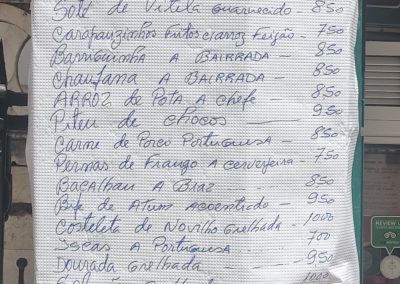 Solé de Vitela Guarnecido - 850
Carapauzinhos Fritos c/arroz Feijão - 750
Barriguinha A BAIRRADA - 850
Chanfana A BAIRRADA - 850
ARROZ de Pota A Chefe - 850
Piteu de CHOCOS - 950
Carne de Porco Portuguesa - 850
Pernas de Frango A cervejeira - 750
Bacalhau A Braz - 850
Bife de Atum Acebolado - 950
Costeleta de Novilho Grelhada - 1000
Iscas A Portuguesa - 700
DOURADA Grelhada - 950
1000
REVIEW